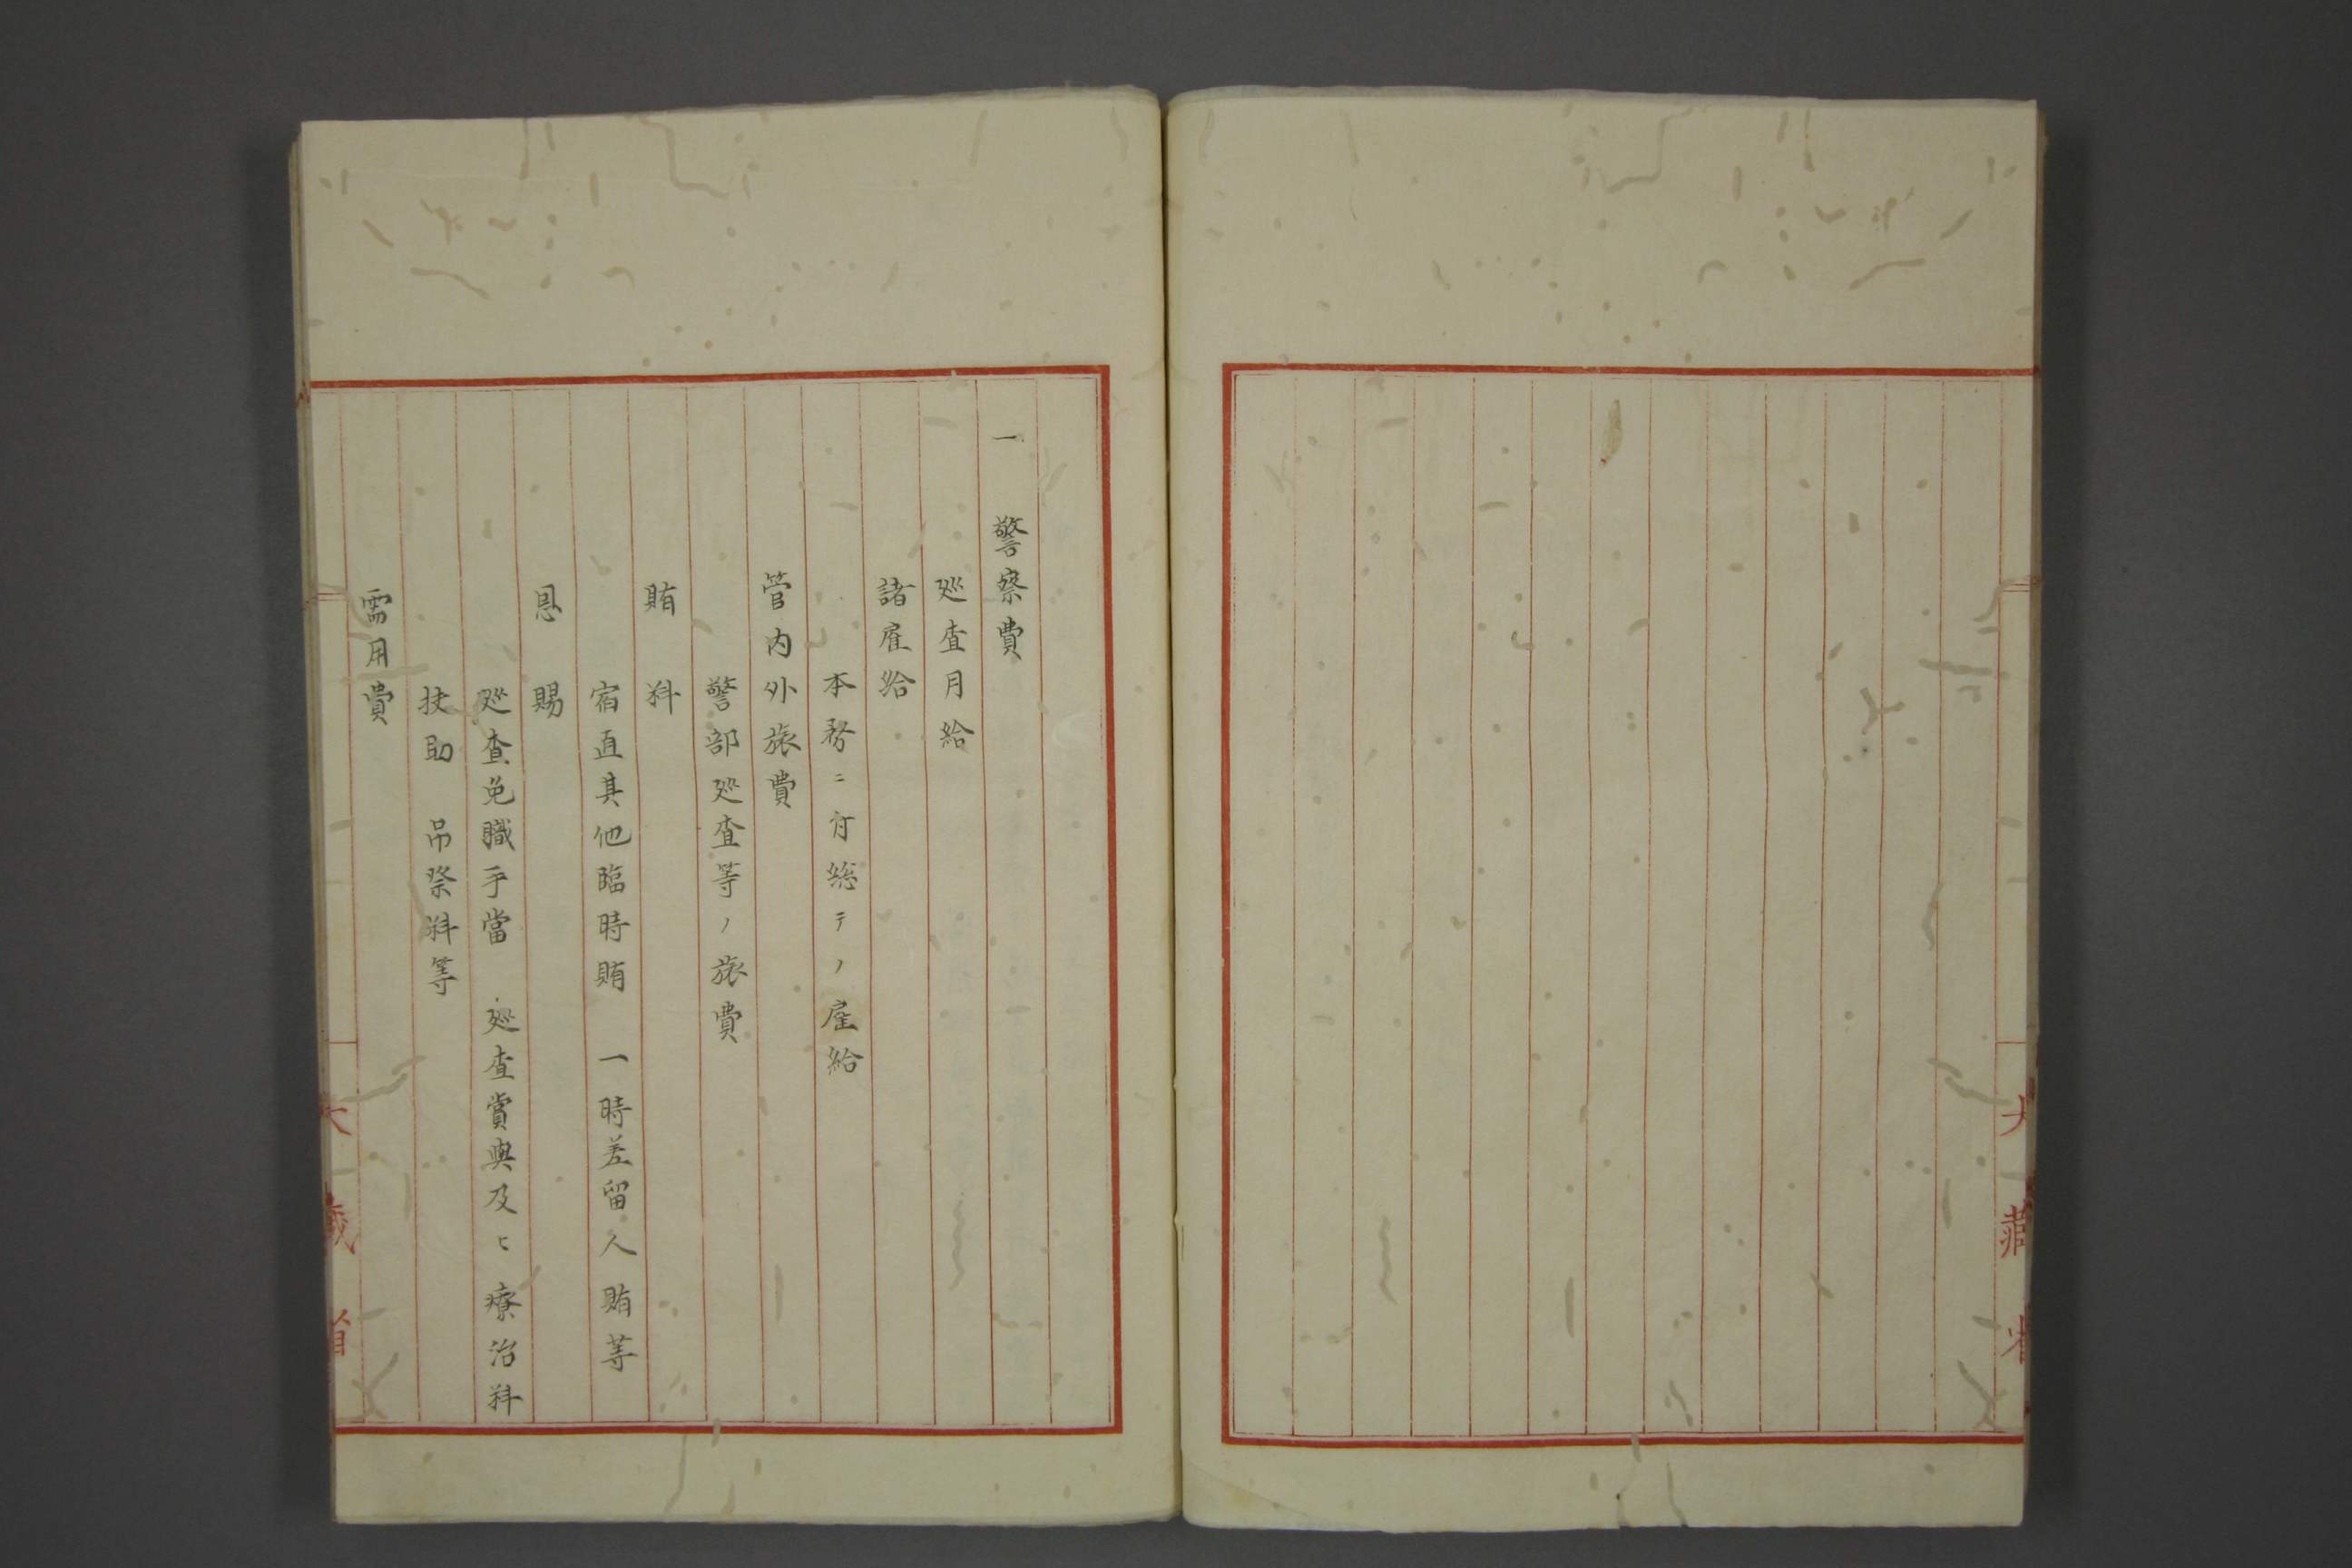 大藏省
一　警察費
巡査月給
諸雇給
本務ニ付総テノ雇給
管内外旅費
警部巡査等ノ旅費
賄料
宿直其他臨時賄　一時差留人賄等
恩賜
巡査免職手當　巡査賞與及ヒ療治料
扶助　吊祭料等
需用費
大藏省